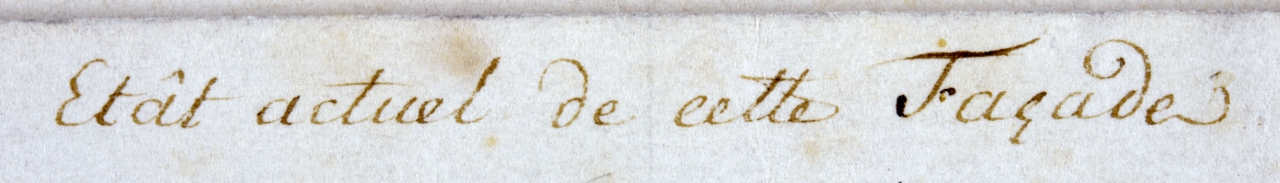 Etât actuel de cette Façade